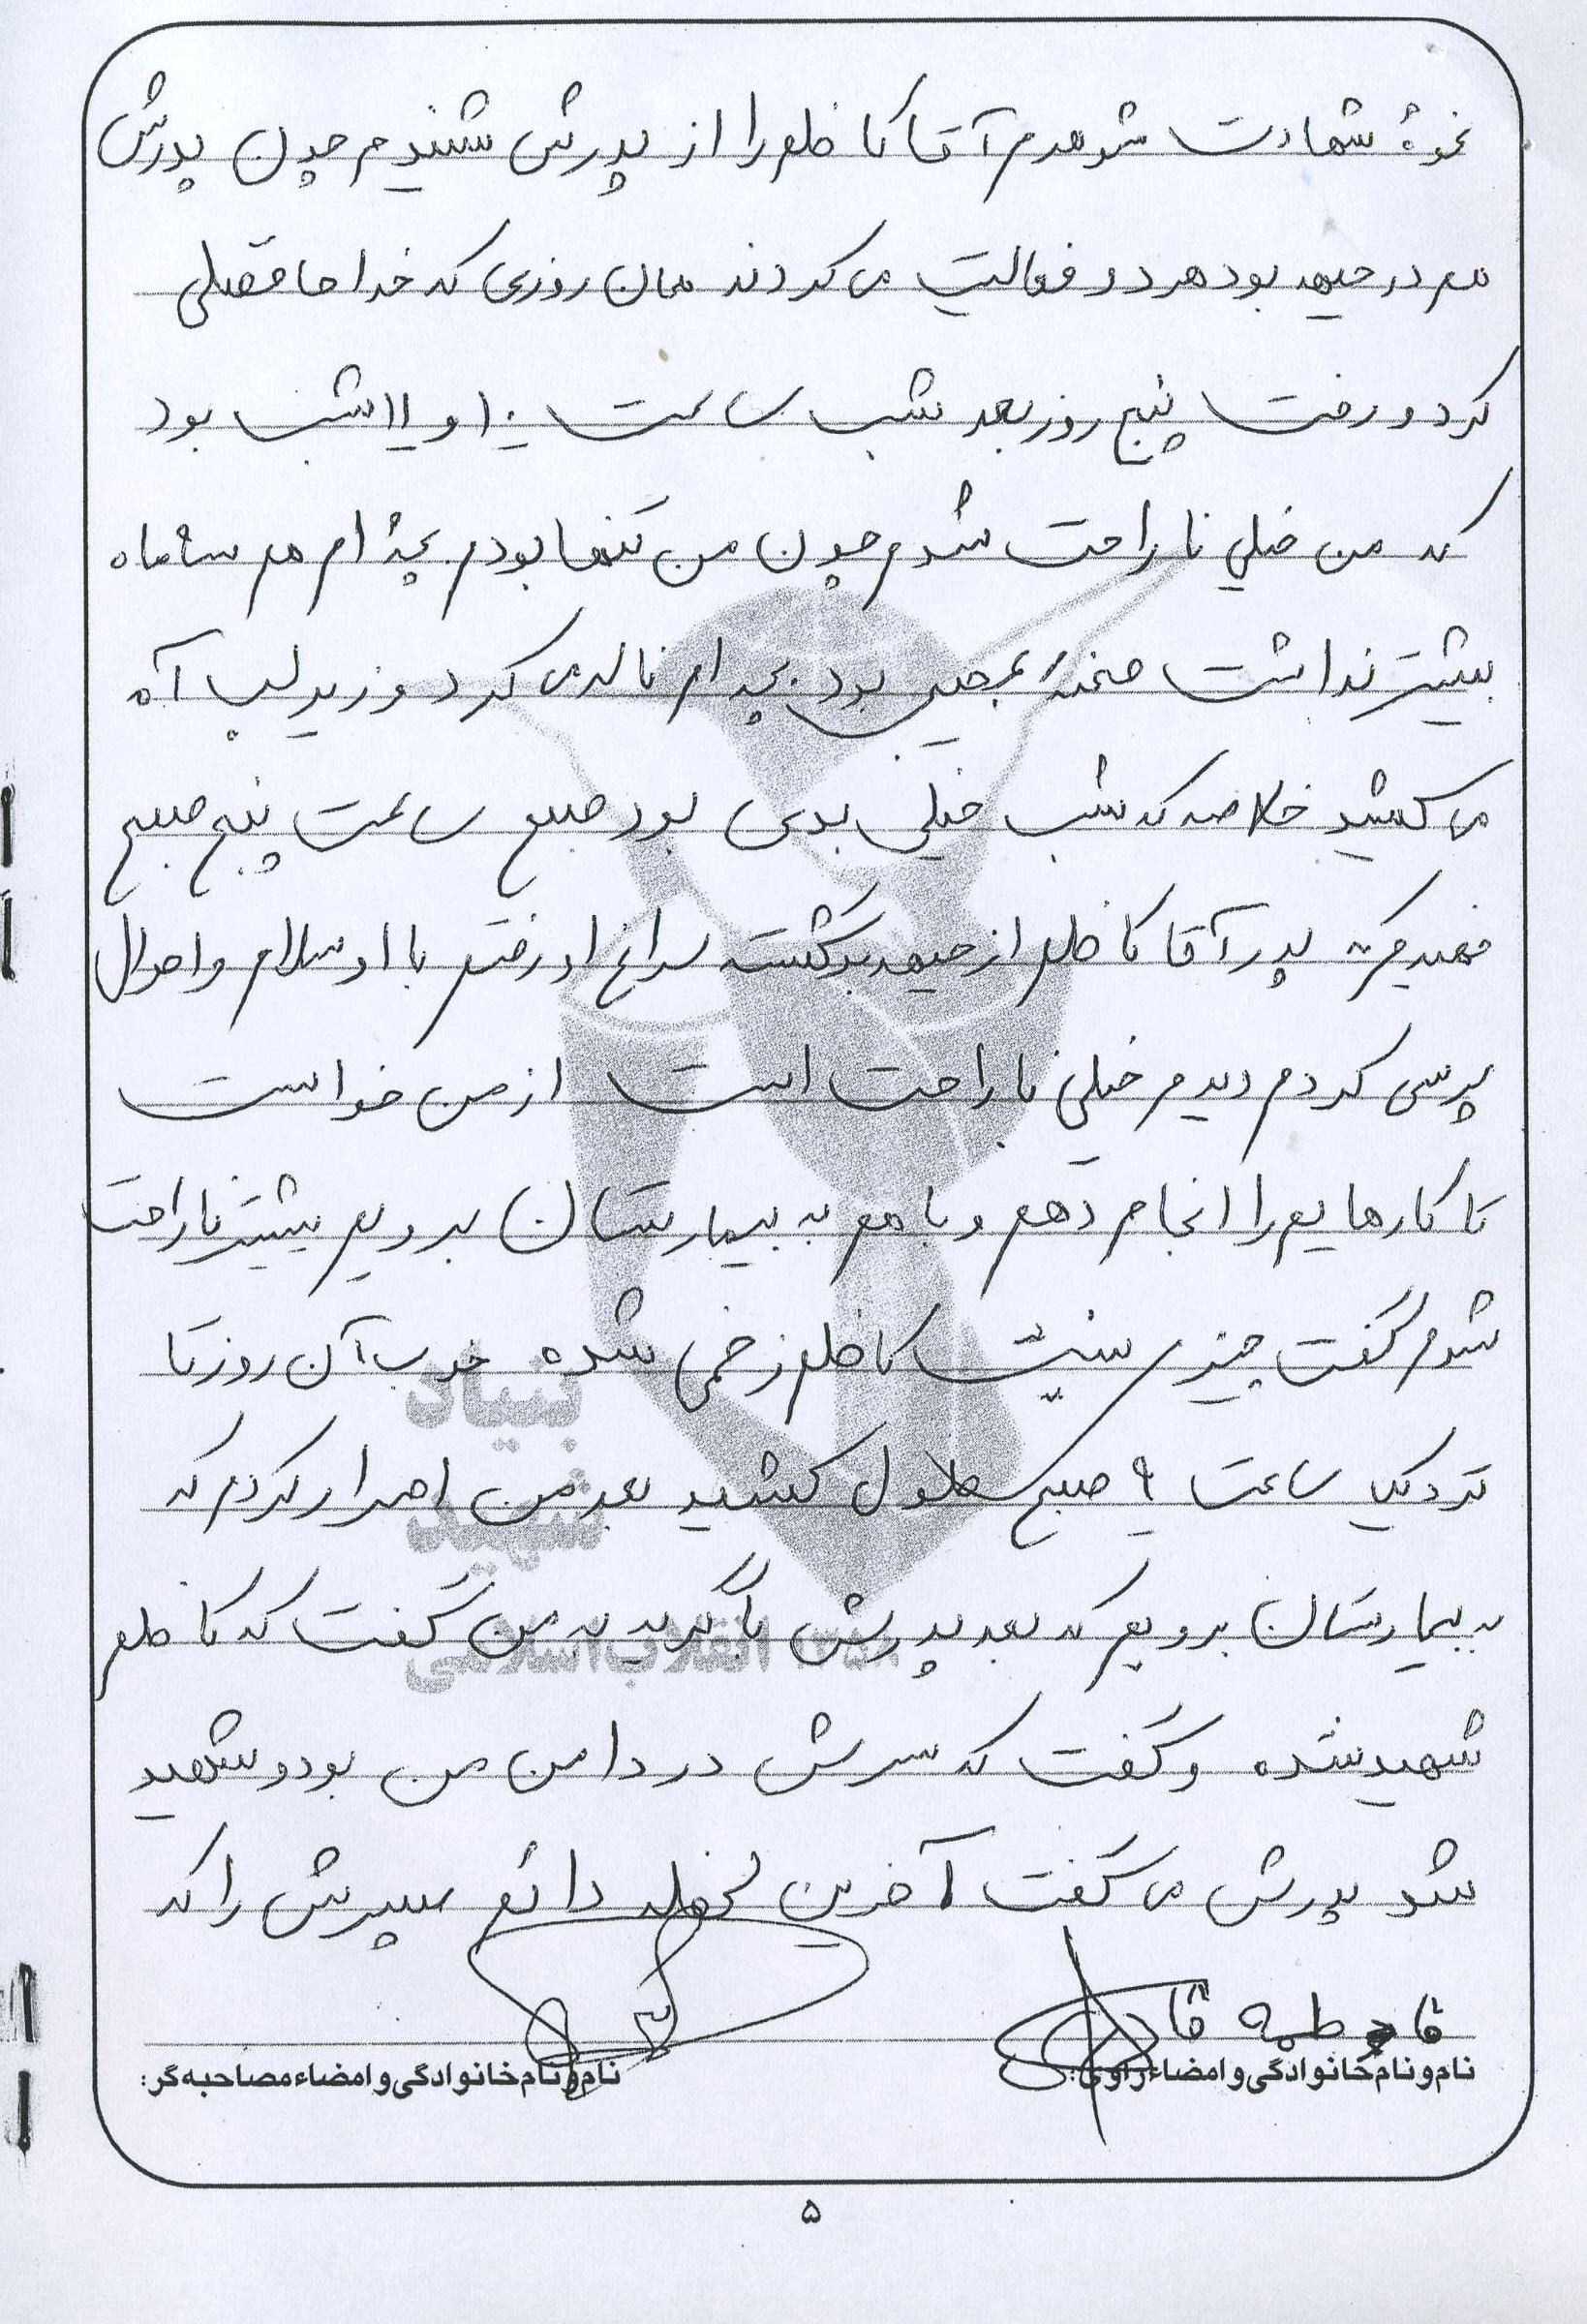 نحوۀ شهادت شوهرم آقا کاظم را از پدرش شنیدم چون پدرش
هم در جبهه بود هر دو فعالیت می کردند همان روزی که خداحافظی
کرد و رفت پنج روز بعد شب ساعت ۱۰ و ۱۱ شب بود
که من خیلی ناراحت شدم چون من تنها بودم بچه ام هم سه ماه
بیشتر نداشت صحنۀ عجیبی بود بچه ام ناله می کرد و زیر لب آه
می کشید خلاصه که شب خیلی بدی بود صبح ساعت پنج صبح
فهمیدم که پدر آقا کاظم از جبهه برگشته سراغ او رفتم با او سلام و احوال
پرسی کردم دیدم خیلی ناراحت است از من خواست
تا کارهایم را انجام دهم و با هم به بیمارستان برویم بیشتر ناراحت
شدم گفت چیزی نیست کاظم زخمی شده خوب آن روز تا
نزدیک ساعت ۹ صبح طول کشید بعد من اصرار کردم که
به بیمارستان برویم که بعد پدرش با گریه به من گفت که کاظم
شهید شده و گفت که سرش در دامن من بود و شهید
شد پدرش می گفت آخرین لحظه دائم پسرش را که
فاطمه
نام و نام خانوادگی و امضاء راوی:
نام و نام خانوادگی و امضاء مصاحبه گر:
۵
بنیاد
شهید
انقلاب اسلامی